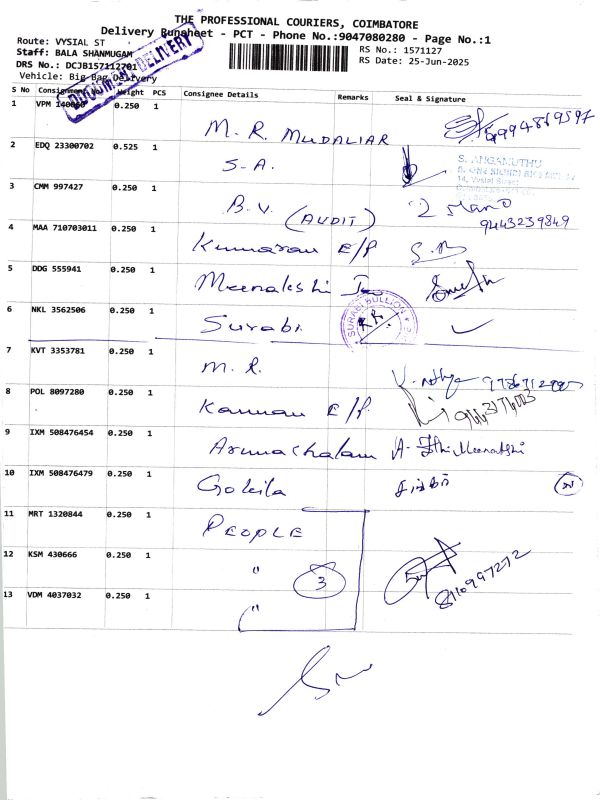 THE PROFESSIONAL COURIERS, COIMBATORE
Delivery Runsheet - PCT - Phone No.:9047080280 - Page No.:1
Route: VYSIAL ST
Staff: BALA SHANMUGAM
DRS No.: DCJB157112701
Vehicle: Big Bag Delivery
RS No.: 1571127
RS Date: 25-Jun-2025
DOCUMENT DELIVERY
S No Consignment No Weight PCS Consignee Details Remarks Seal & Signature
1 VPM 140060 0.250 1 M. R. MUDALIAR
2 EDQ 23300702 0.525 1 S-A. S. ANGAMUTHU
3 CMM 997427 0.250 1 B.V. (AUDIT) 9443239849
4 MAA 710703011 0.250 1 Kumaran E/P
5 DDG 555941 0.250 1 Meenakshi
6 NKL 3562506 0.250 1 Surabi SURABI BULLION
7 KVT 3353781 0.250 1 M. R.
8 POL 8097280 0.250 1 Kannan E/P.
9 IXM 508476454 0.250 1 Arunachalam
10 IXM 508476479 0.250 1 Gokila
11 MRT 1320844 0.250 1 PEOPLE
12 KSM 430666 0.250 1 " 3 8110997272
13 VDM 4037032 0.250 1 "